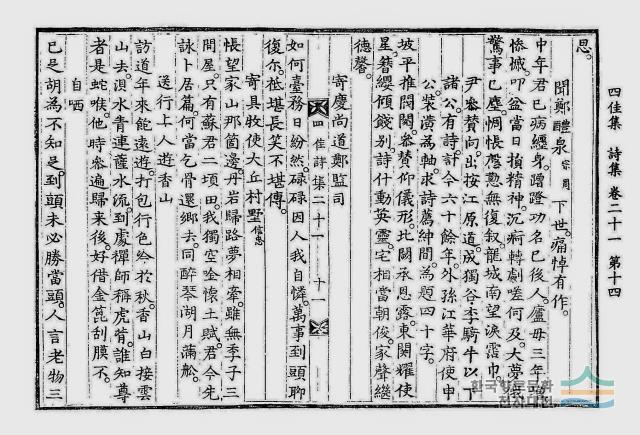 四佳集 詩集 卷二十一 第十四
思。
聞鄭醴泉 宗周 下世。痛悼有作。
中年君已病纏身。蹭蹬功名已後人。廬母三年
慘慽。叩盆當日損精神。沉痾轉劇嗟何及。大夢俄
驚事已塵。惆悵慇懃無復叙。龍城南望淚霑巾。
尹參贊向。出按江原道。成獨谷李騎牛以下
諸公有詩。計今六十餘年。外孫江華府使申
公粧潢爲軸。求詩薦紳間。爲題四十字。
坡平推閥閱。參贊仰儀形。北闕承恩露。東關耀使
星。簪纓傾餞別。詩什動英靈。宅相當朝俊。家聲繼
德馨。
寄慶尚道鄭監司
四佳詩集二十一 十一
如何臺務日紛然。碌碌因人我自憐。萬事到頭聊
復尒。祗堪長笑不堪傳。
寄具牧使大丘村墅 信忠
悵望家山那箇邊。丹岩歸路夢相牽。雖無季子三
間屋。只有蘇君二頃田。我獨空吟懷土賦。君今先
詠卜居篇。何當乞骨還鄉去。同醉琴湖月滿舩。
送行上人遊香山
訪道年來飽遠遊。打包行色給於秋。香山白接雲
山去。浿水青連薩水流。到處禪師稱虎。誰知尊
者是蛇喉。他時參遍歸來後。好借金篦刮膜不。
自哂
已是胡爲不知足。到頭未必勝當頭。人言老物三
한국향토문화
전자대전